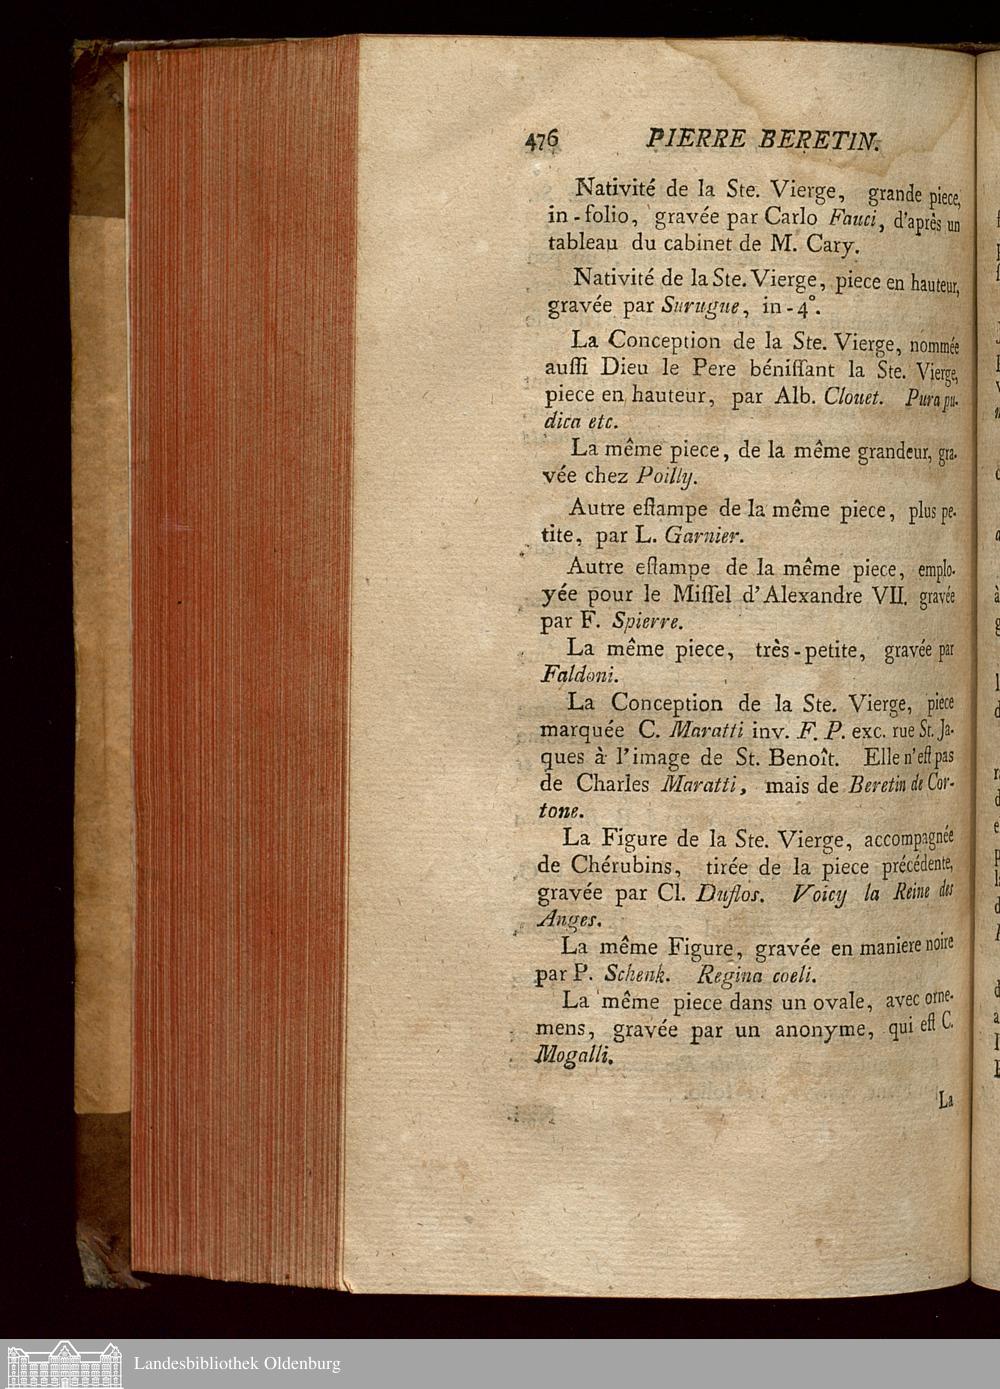 476 PIERRE BERETIN.
Nativité de la Ste. Vierge, grande piece,
in-folio, gravée par Carlo Fauci, d'après un
tableau du cabinet de M. Cary.
Nativité de la Ste. Vierge, piece en hauteur,
gravée par Surugue, in-4°.
La Conception de la Ste. Vierge, nommée
auſſi Dieu le Pere béniſſant la Ste. Vierge,
piece en hauteur, par Alb. Clouet. Pura pu-
dica etc.
La même piece, de la même grandeur, gra-
vée chez Poilly.
Autre eſtampe de la même piece, plus pe-
tite, par L. Garnier.
Autre eſtampe de la même piece, emplo-
yée pour le Miſſel d'Alexandre VII. gravée
par F. Spierre.
La même piece, très-petite, gravée par
Faldoni.
La Conception de la Ste. Vierge, piece
marquée C. Maratti inv. F. P. exc. rue St. Ja-
ques à l'image de St. Benoît. Elle n'eſt pas
de Charles Maratti, mais de Beretin de Cor-
tone.
La Figure de la Ste. Vierge, accompagnée
de Chérubins, tirée de la piece précédente,
gravée par Cl. Duflos. Voicy la Reine des
Anges.
La même Figure, gravée en maniere noire
par P. Schenk. Regina coeli.
La même piece dans un ovale, avec orne-
mens, gravée par un anonyme, qui eſt C.
Mogalli.
La
Landesbibliothek Oldenburg